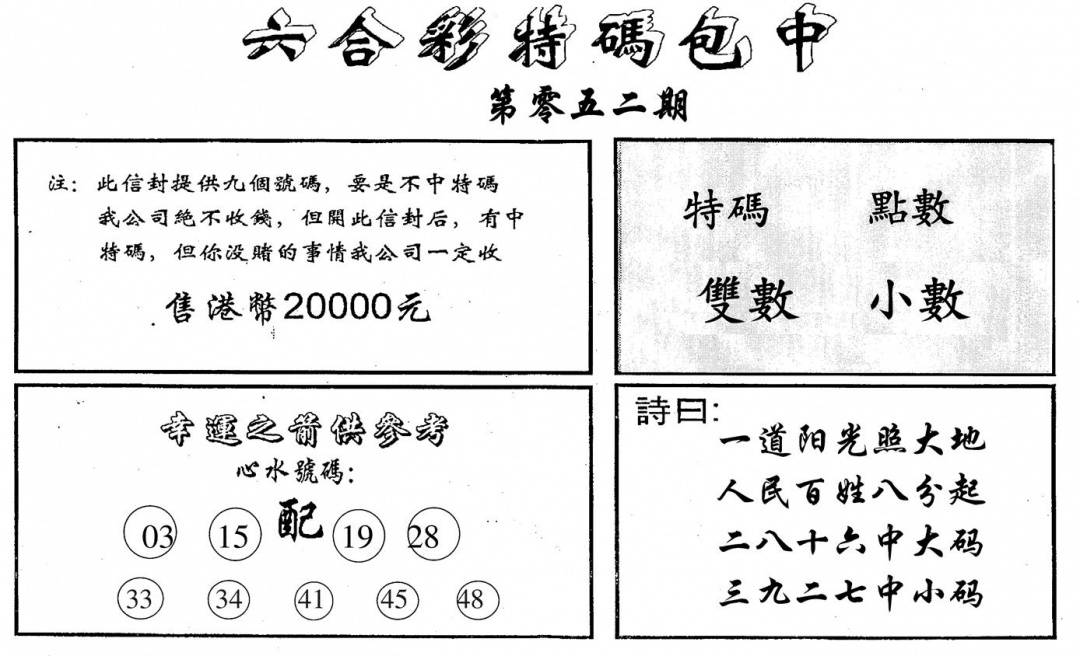 六合彩特碼包中
第零五二期
注：此信封提供九個號碼，要是不中特碼
我公司絕不收錢，但開此信封后，有中
特碼，但你没賭的事情我公司一定收
售港幣20000元
特碼 點數
雙數 小數
幸運之箭供參考
心水號碼：
配
03 15 19 28
33 34 41 45 48
詩曰：
一道阳光照大地
人民百姓八分起
二八十六中大码
三九二七中小码